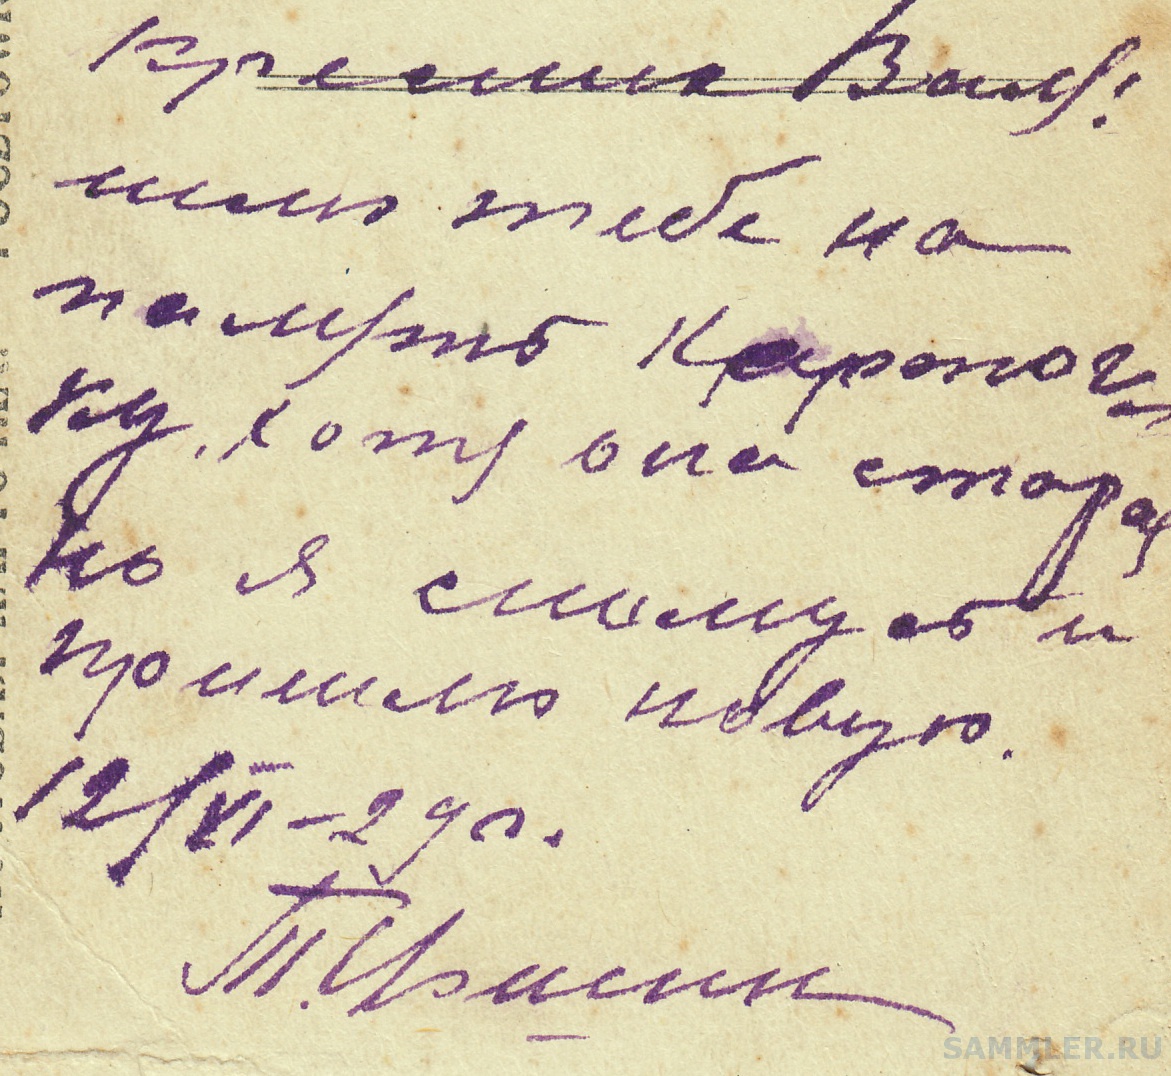 Крепись Вася!
шлю тебе на
память карточ-
ку, хотя она старая
но я снимусь и
пришлю новую.
12/XI-29г.
SAMMLER.RU